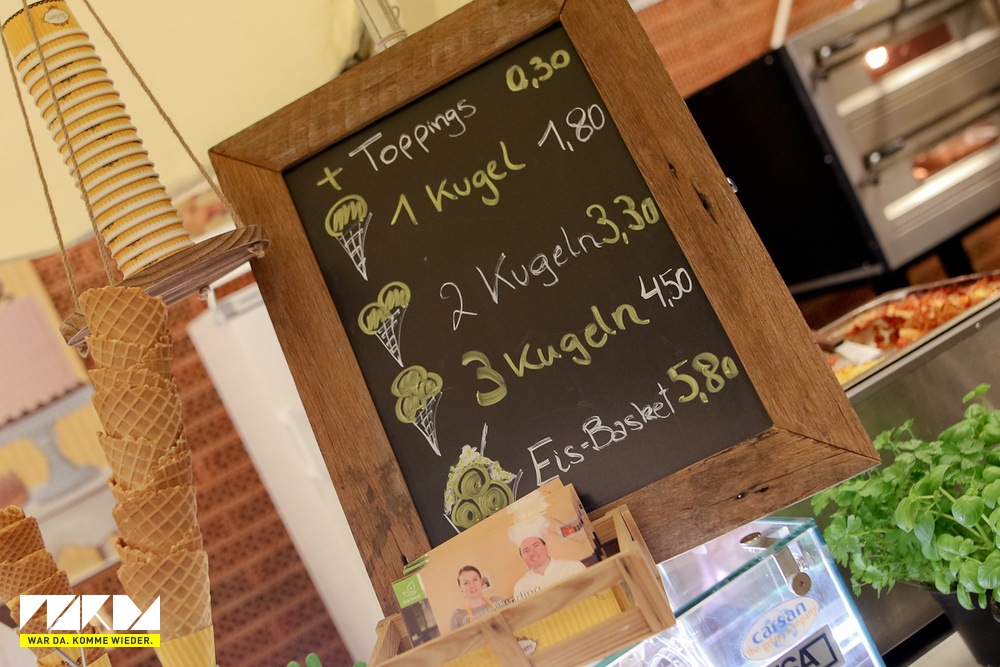 + Toppings 0,30
1 Kugel 1,80
2 Kugeln 3,30
3 Kugeln 4,50
Eis=Basket 5,80
carsan
WAR DA. KOMME WIEDER.